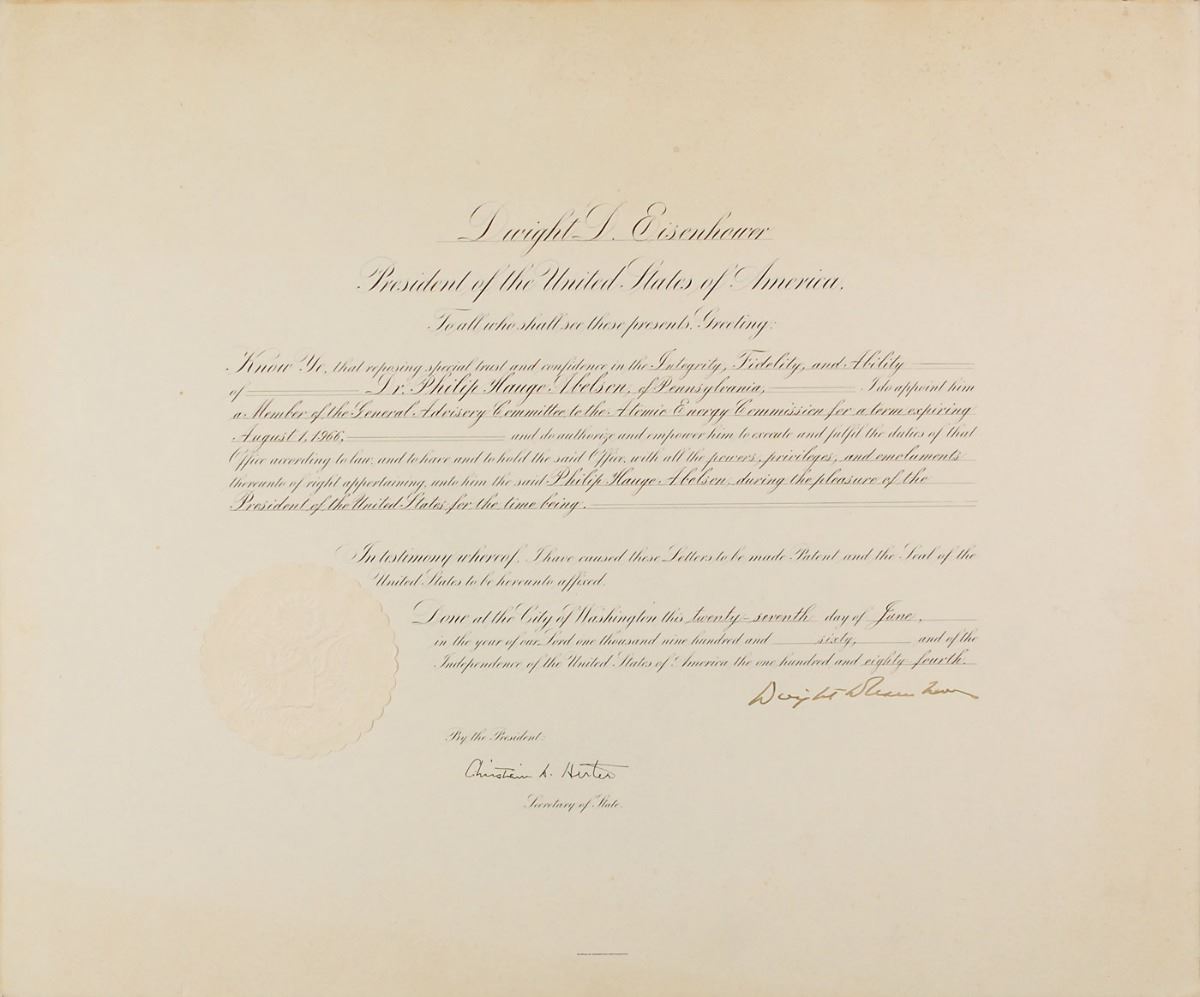 Dwight D. Eisenhower
President of the United States of America.
To all who shall see these presents, Greeting:
Know Ye, that reposing special trust and confidence in the Integrity, Fidelity, and Ability
of Dr. Philip Hauge Abelson, of Pennsylvania, I do appoint him
a Member of the General Advisory Committee to the Atomic Energy Commission for a term expiring
August 1, 1966, and do authorize and empower him to execute and fulfil the duties of that
Office according to law, and to have and to hold the said Office, with all the powers, privileges, and emoluments
thereunto of right appertaining, unto him the said Philip Hauge Abelson, during the pleasure of the
President of the United States for the time being.
In testimony whereof, I have caused these Letters to be made Patent and the Seal of the
United States to be hereunto affixed.
Done at the City of Washington this twenty-seventh day of June,
in the year of our Lord one thousand nine hundred and sixty, and of the
Independence of the United States of America the one hundred and eighty fourth.
Dwight D Eisenhower
By the President:
Christian A. Herter
Secretary of State.